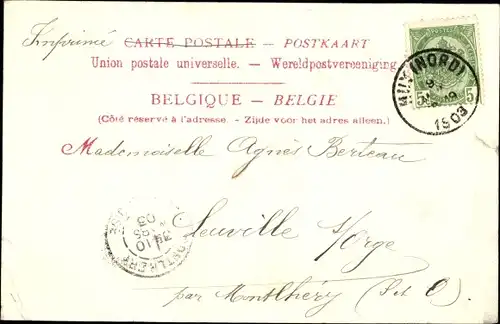 Imprimé
CARTE POSTALE — POSTKAART
Union postale universelle. — Wereldpostvereeniging
BELGIQUE — BELGIE
(Côté réservé à l'adresse. - Zijde voor het adres alleen.)
HUY (NORD)
1903
5
5
Mademoiselle Agnès Berteau
Leuville s/orge
par Montlhéry (S et O)
MONTLHERY
03